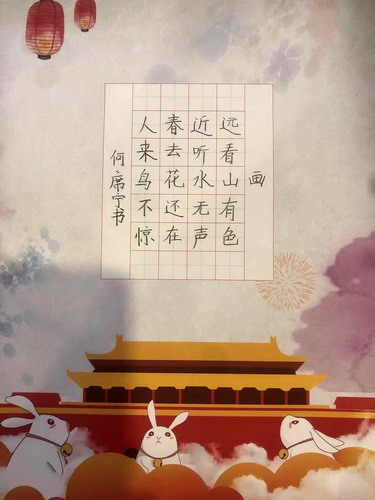 画
远看山有色
近听水无声
春去花还在
人来鸟不惊
何席宁书